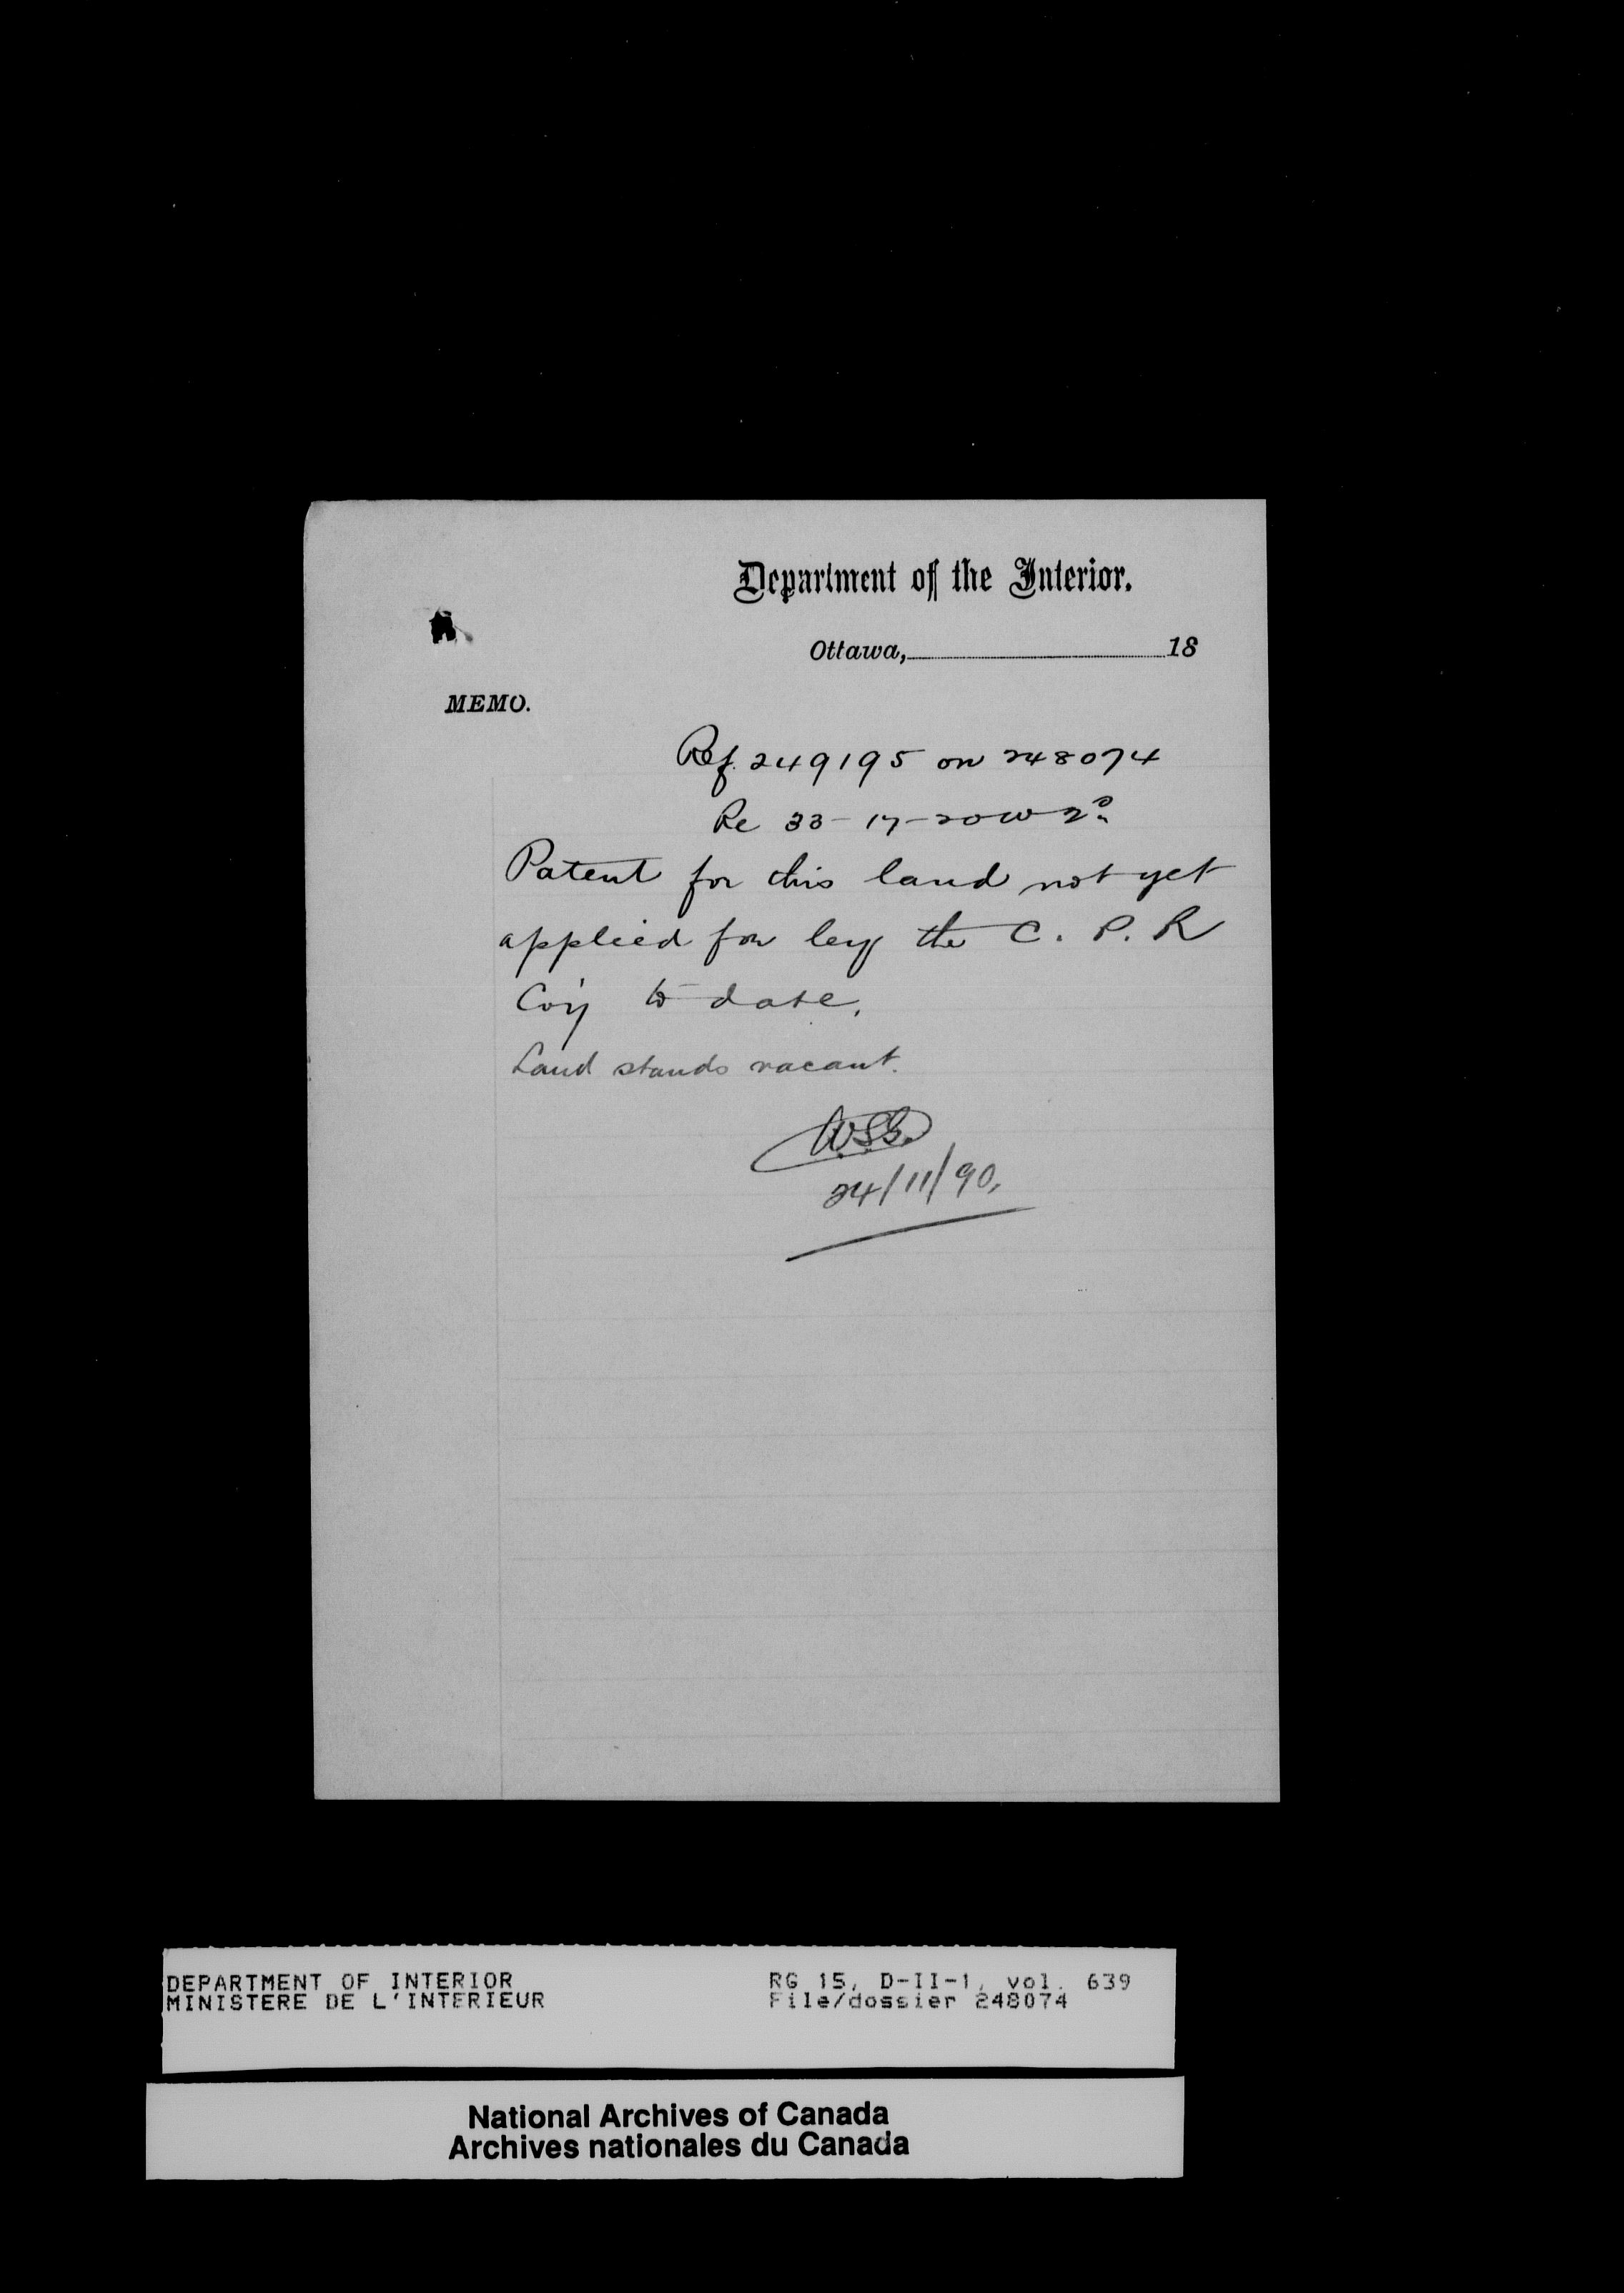 Department of the Interior.
Ottawa, 18
MEMO.
Ref. 249195 on 248074
Re 33-17-20 W 2nd
Patent for this land not yet
applied for by the C. P. R
Co'y to date.
Land stands vacant.
24/11/90.
DEPARTMENT OF INTERIOR
MINISTERE DE L'INTERIEUR
RG 15, D-II-1, vol. 639
File/dossier 248074
National Archives of Canada
Archives nationales du Canada